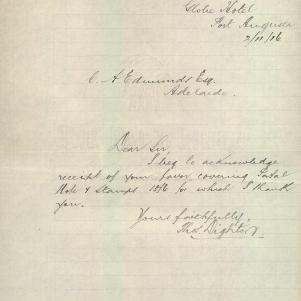 Globe Hotel
Port Augusta
2/11/16
C. A Edmunds Esq.
Adelaide.
Dear Sir,
I beg to acknowledge
receipt of your favor covering Postal
Note & Stamps 15/6 for which I thank
you.
Yours faithfully,
Thos. Dighton